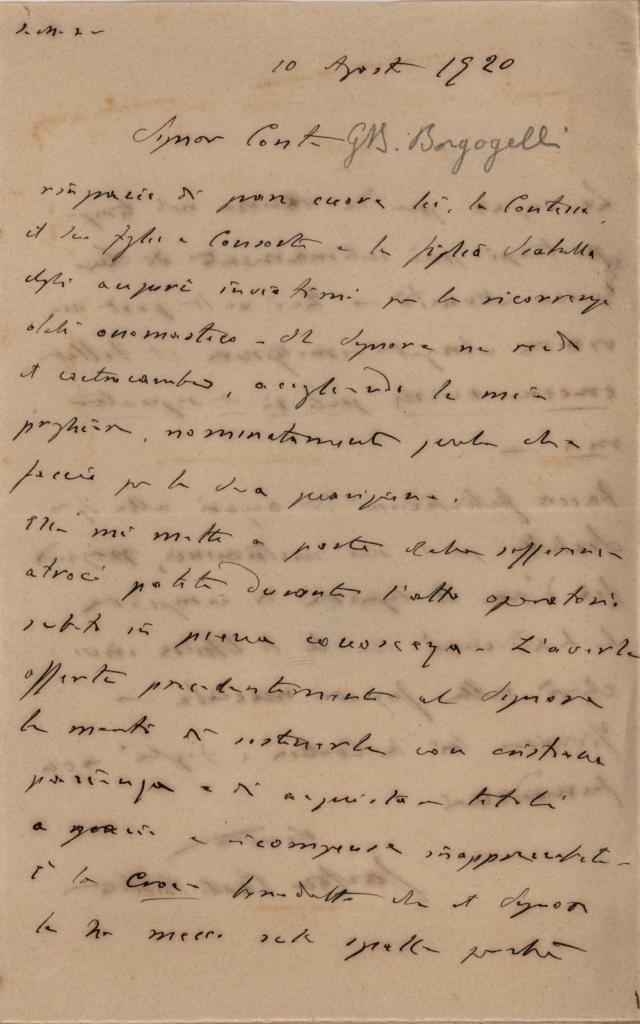 10 Agosto 1920
Signor Conte GB. Borgogelli
ringrazio di gran cuore lei, la Contessa,
il suo figlio e Consorte e la figlia Isabella,
degli auguri inviatimi per la ricorrenza
onomastico - Il Signore ne renda
il contraccambio, accogliendo le mie
preghiere, nominatamente quelle che
faccio per la sua guarigione.
Ella mi mette a parte delle sofferenze
atroci patite durante l'atto operatorio
subito in piena conoscenza - L'averle
offerte precedentemente al Signore
le meritò di sostenerle con cristiana
pazienza e di acquistare titoli
a grazie e ricompense inapprezzabili -
È la Croce benedetta che il Signore
le ha messo sulle spalle perchè